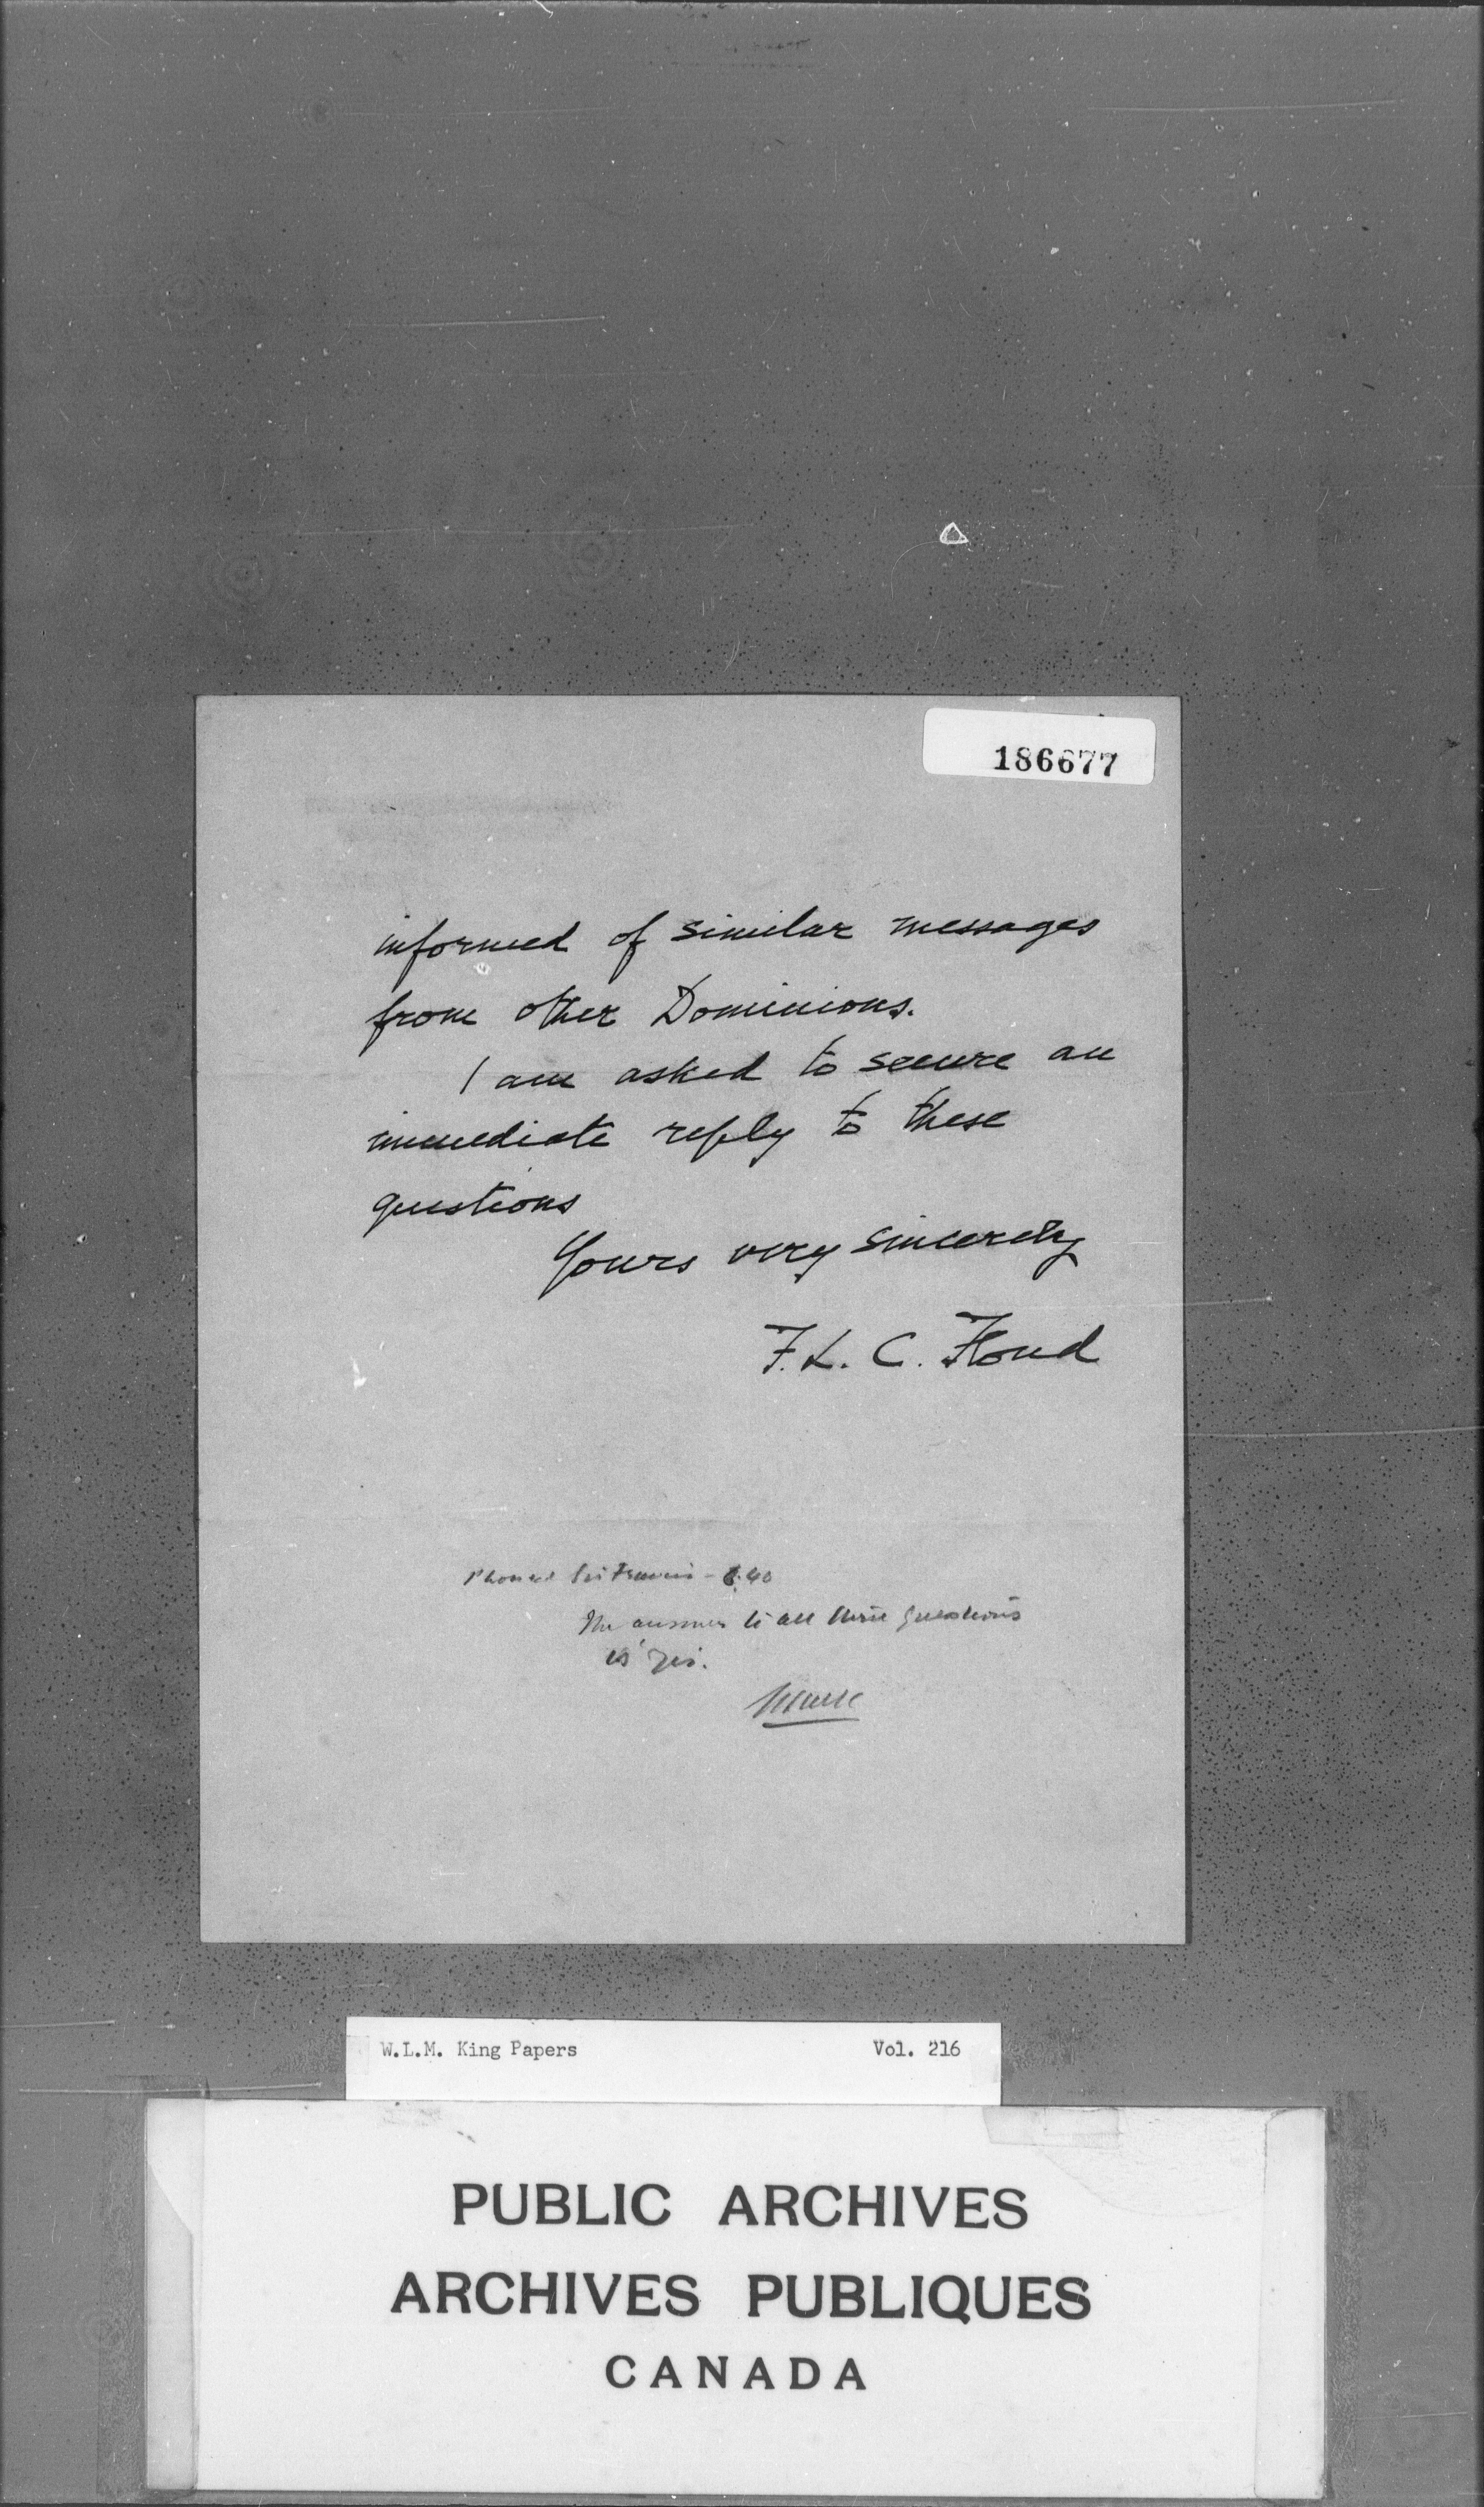 186677
informed of similar messages
from other Dominions.
I am asked to secure an
immediate reply to these
questions
Yours very sincerely
F.L.C. Floud
Phoned Sir Francis - 40
The answer to all these questions
is yes.
W.L.M. King Papers Vol. 216
PUBLIC ARCHIVES
ARCHIVES PUBLIQUES
CANADA